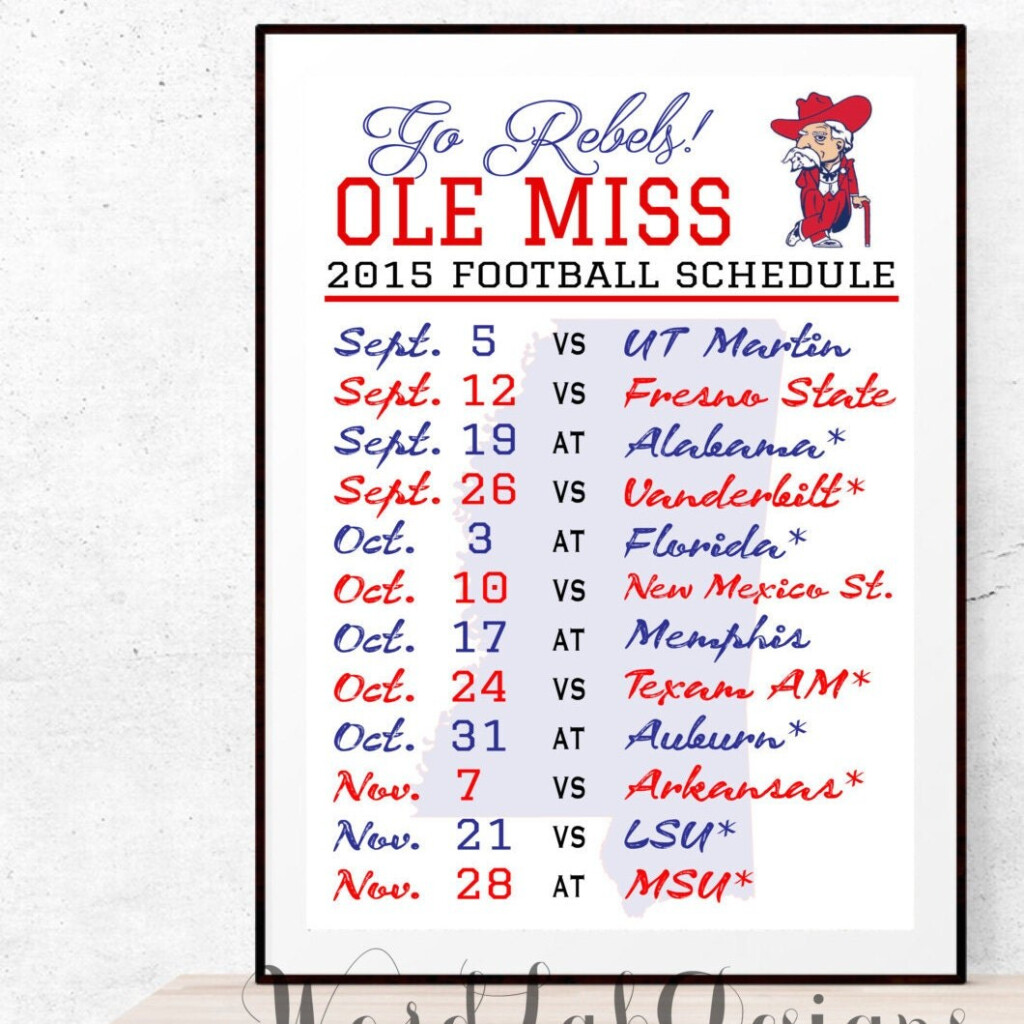 Go Rebels!
OLE MISS
2015 FOOTBALL SCHEDULE
Sept. 5 VS UT Martin
Sept. 12 VS Fresno State
Sept. 19 AT Alabama*
Sept. 26 VS Vanderbilt*
Oct. 3 AT Florida*
Oct. 10 VS New Mexico St.
Oct. 17 AT Memphis
Oct. 24 VS Texam AM*
Oct. 31 AT Auburn*
Nov. 7 VS Arkansas*
Nov. 21 VS LSU*
Nov. 28 AT MSU*
WordLabDesigns